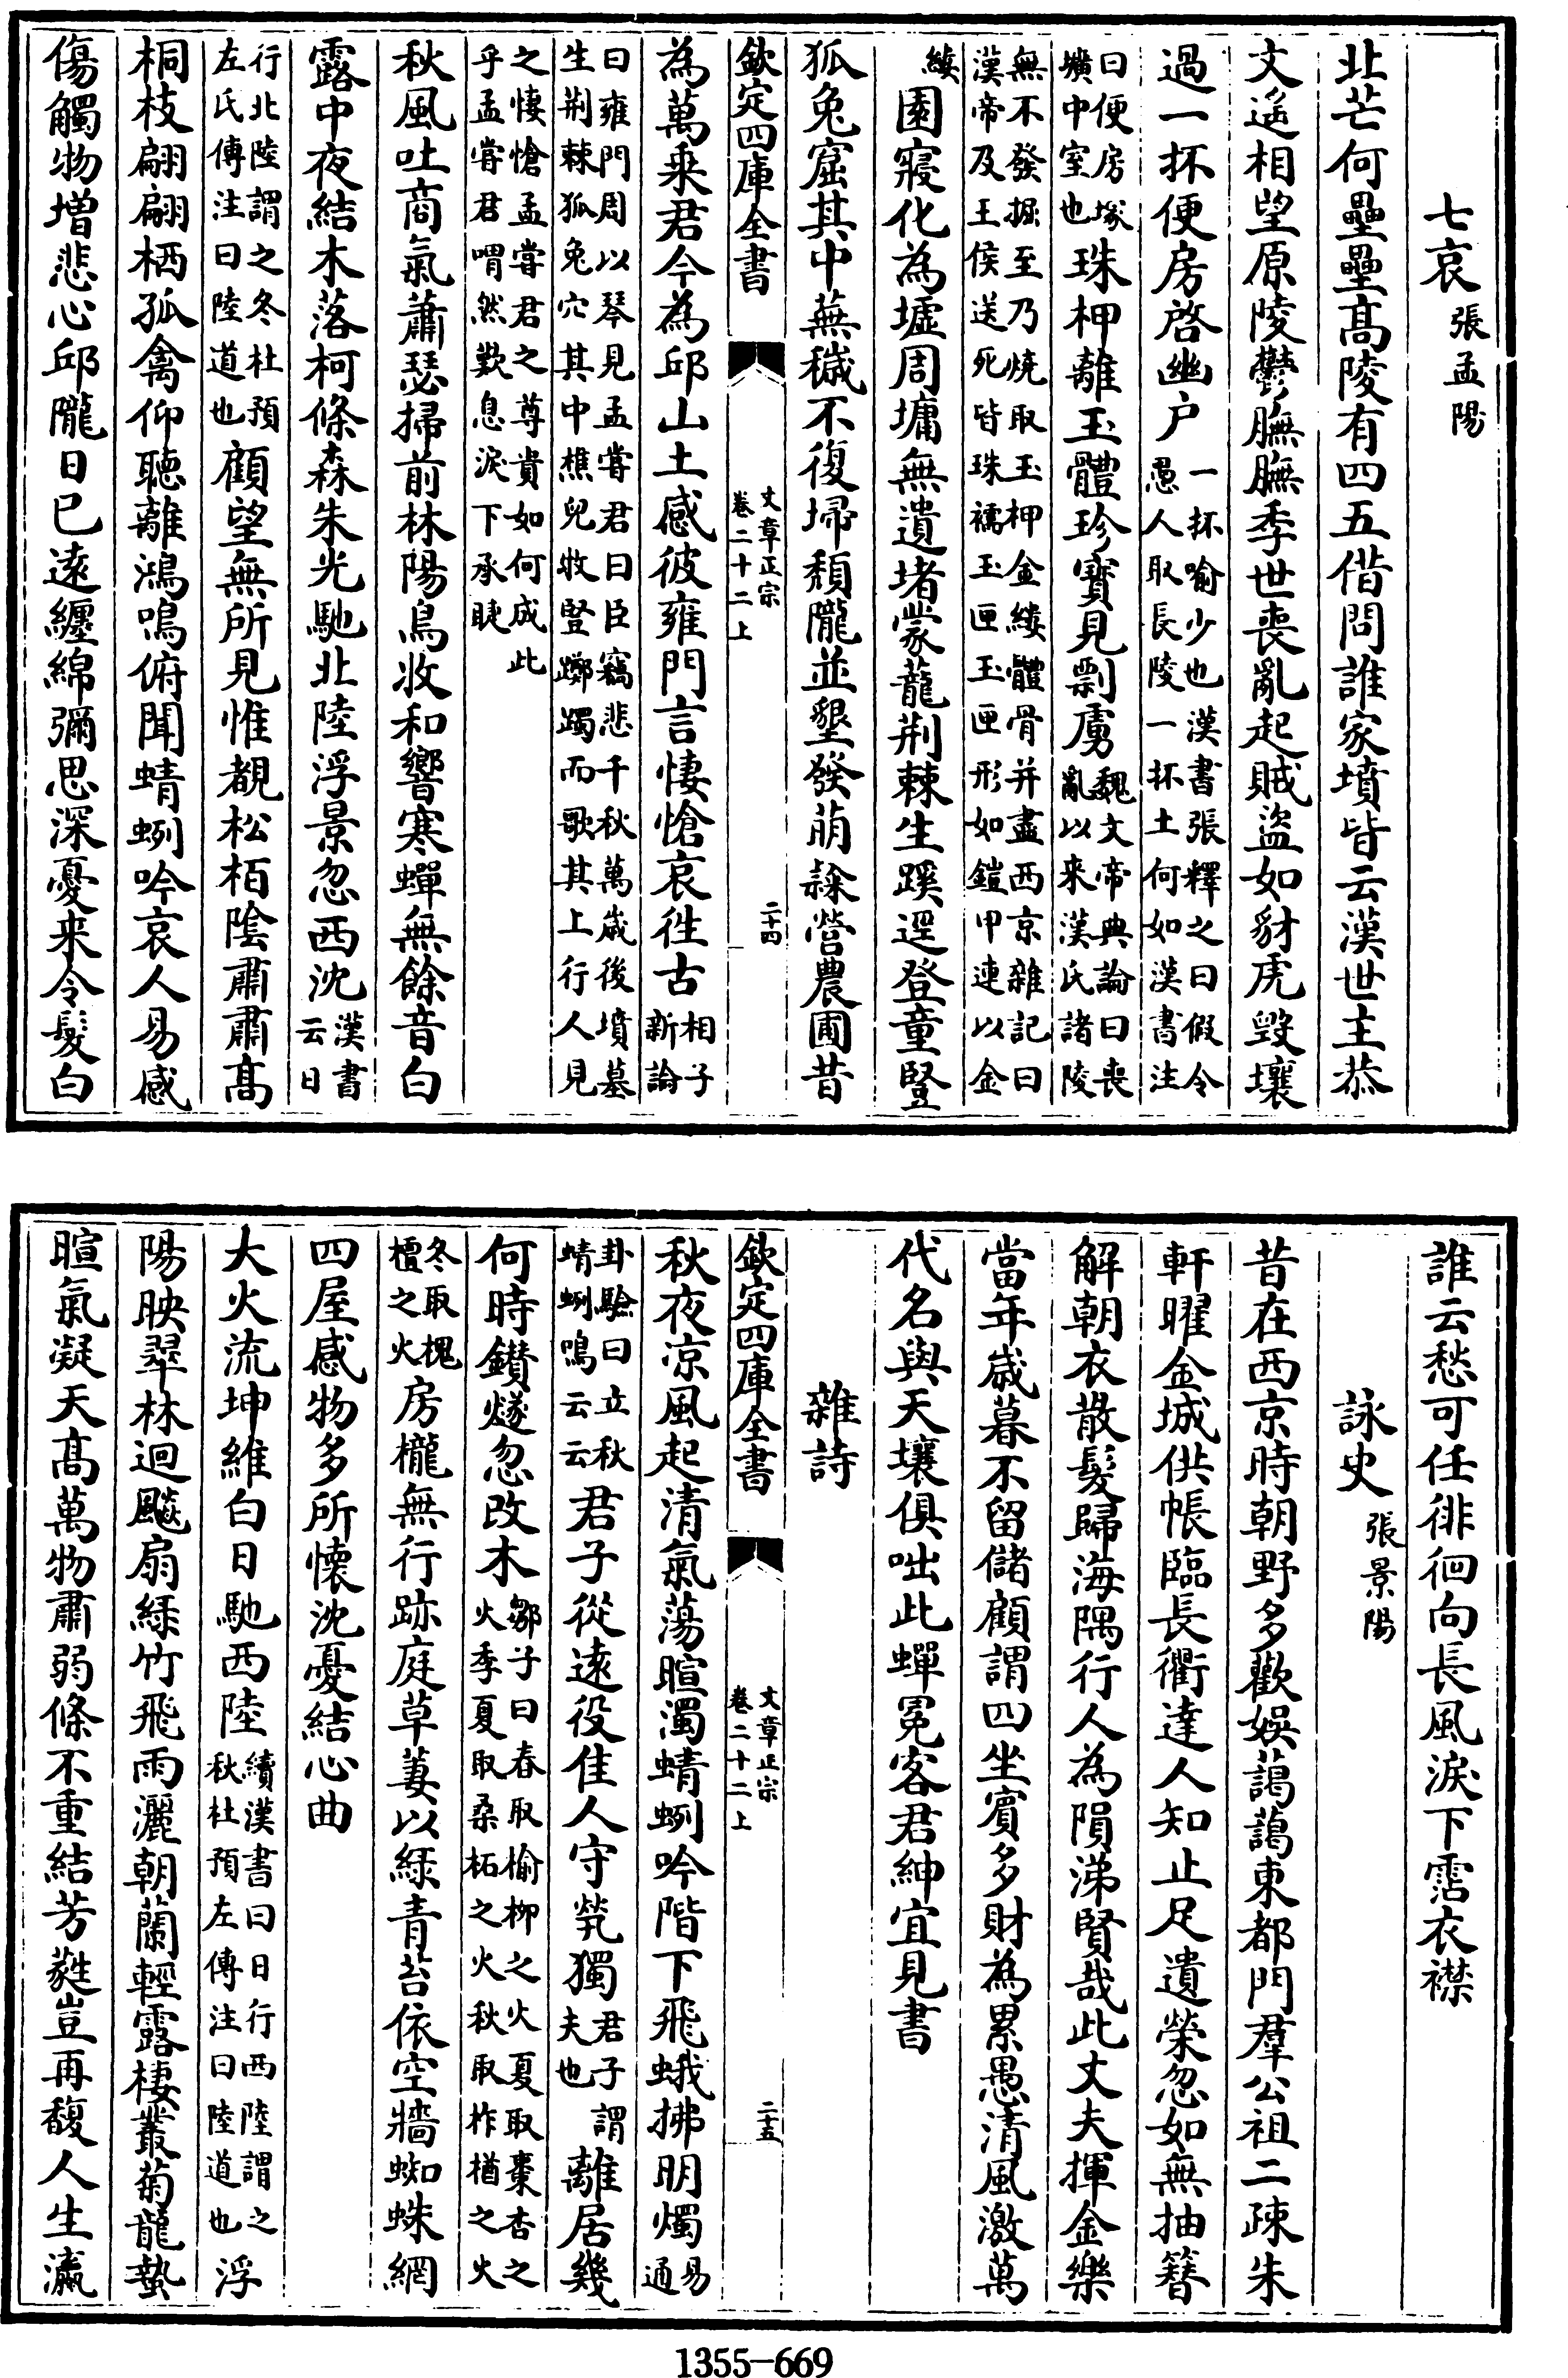 七哀張孟陽
北芒何壘壘髙陵有四五借問誰家墳皆云漢世主恭
文遙相望原陵鬱膴膴季世喪亂起賊盜如豺虎毀壤
過一抔便房啓幽户一抔喻少也漢書張釋之曰假令愚人取長陵一抔土何如漢書注
曰便房塚壙中室也珠柙離玉體珍寳見剽虜魏文帝典論曰喪亂以来漢氏諸陵
無不發掘至乃燒取玉柙金縷體骨并盡西京雜記曰漢帝及王侯送死皆珠襦玉匣玉匣形如鎧甲連以金
縷園寢化為墟周墉無遺堵蒙蘢荆棘生蹊逕登童豎
狐兔窟其中蕪穢不復埽頽隴並墾發萌隸營農圃昔
欽定四庫全書
文章正宗
卷二十二上
二十四
為萬乗君今為邱山土感彼雍門言悽愴哀徃古相子新論
曰雍門周以琴見孟嘗君曰臣竊悲千秋萬歳後墳墓生荆棘狐兔穴其中樵兒牧豎躑躅而歌其上行人見
之悽愴孟嘗君之尊貴如何成此乎孟嘗君喟然歎息淚下承睫
秋風吐商氣蕭瑟掃前林陽鳥收和響寒蟬無餘音白
露中夜結木落柯條森朱光馳北陸浮景忽西沈漢書云日
行北陸謂之冬杜預左氏傳注曰陸道也顧望無所見惟覩松栢陰肅肅髙
桐枝翩翩栖孤禽仰聽離鴻鳴俯聞蜻蛚吟哀人易感
傷觸物増悲心邱隴日已遠纏綿彌思深憂来令髮白
誰云愁可任徘徊向長風淚下霑衣襟
詠史張景陽
昔在西京時朝野多歡娛藹藹東都門羣公祖二疎朱
軒曜金城供帳臨長衢達人知止足遺榮忽如無抽簪
解朝衣散髮歸海隅行人為隕涕賢哉此丈夫揮金樂
當年歳暮不留儲顧謂四坐賓多財為累愚清風激萬
代名與天壤俱咄此蟬冕客君紳宜見書
雜詩
欽定四庫全書
文章正宗
卷二十二上
二十五
秋夜涼風起清氣蕩暄濁蜻蛚吟階下飛蛾拂明燭易通
卦驗曰立秋蜻蛚鳴云云君子從遠役佳人守煢獨君子謂夫也離居幾
何時鑚燧忽改木鄒子曰春取榆柳之火夏取棗杏之火季夏取桑柘之火秋取柞楢之火
冬取槐檀之火房櫳無行跡庭草萋以緑青苔依空牆蜘蛛網
四屋感物多所懷沈憂結心曲
大火流坤維白日馳西陸續漢書曰日行西陸謂之秋杜預左傳注曰陸道也浮
陽映翠林迴飈扇緑竹飛雨灑朝蘭輕露棲叢菊龍蟄
暄氣凝天髙萬物肅弱條不重結芳蕤豈再馥人生瀛
1355-669